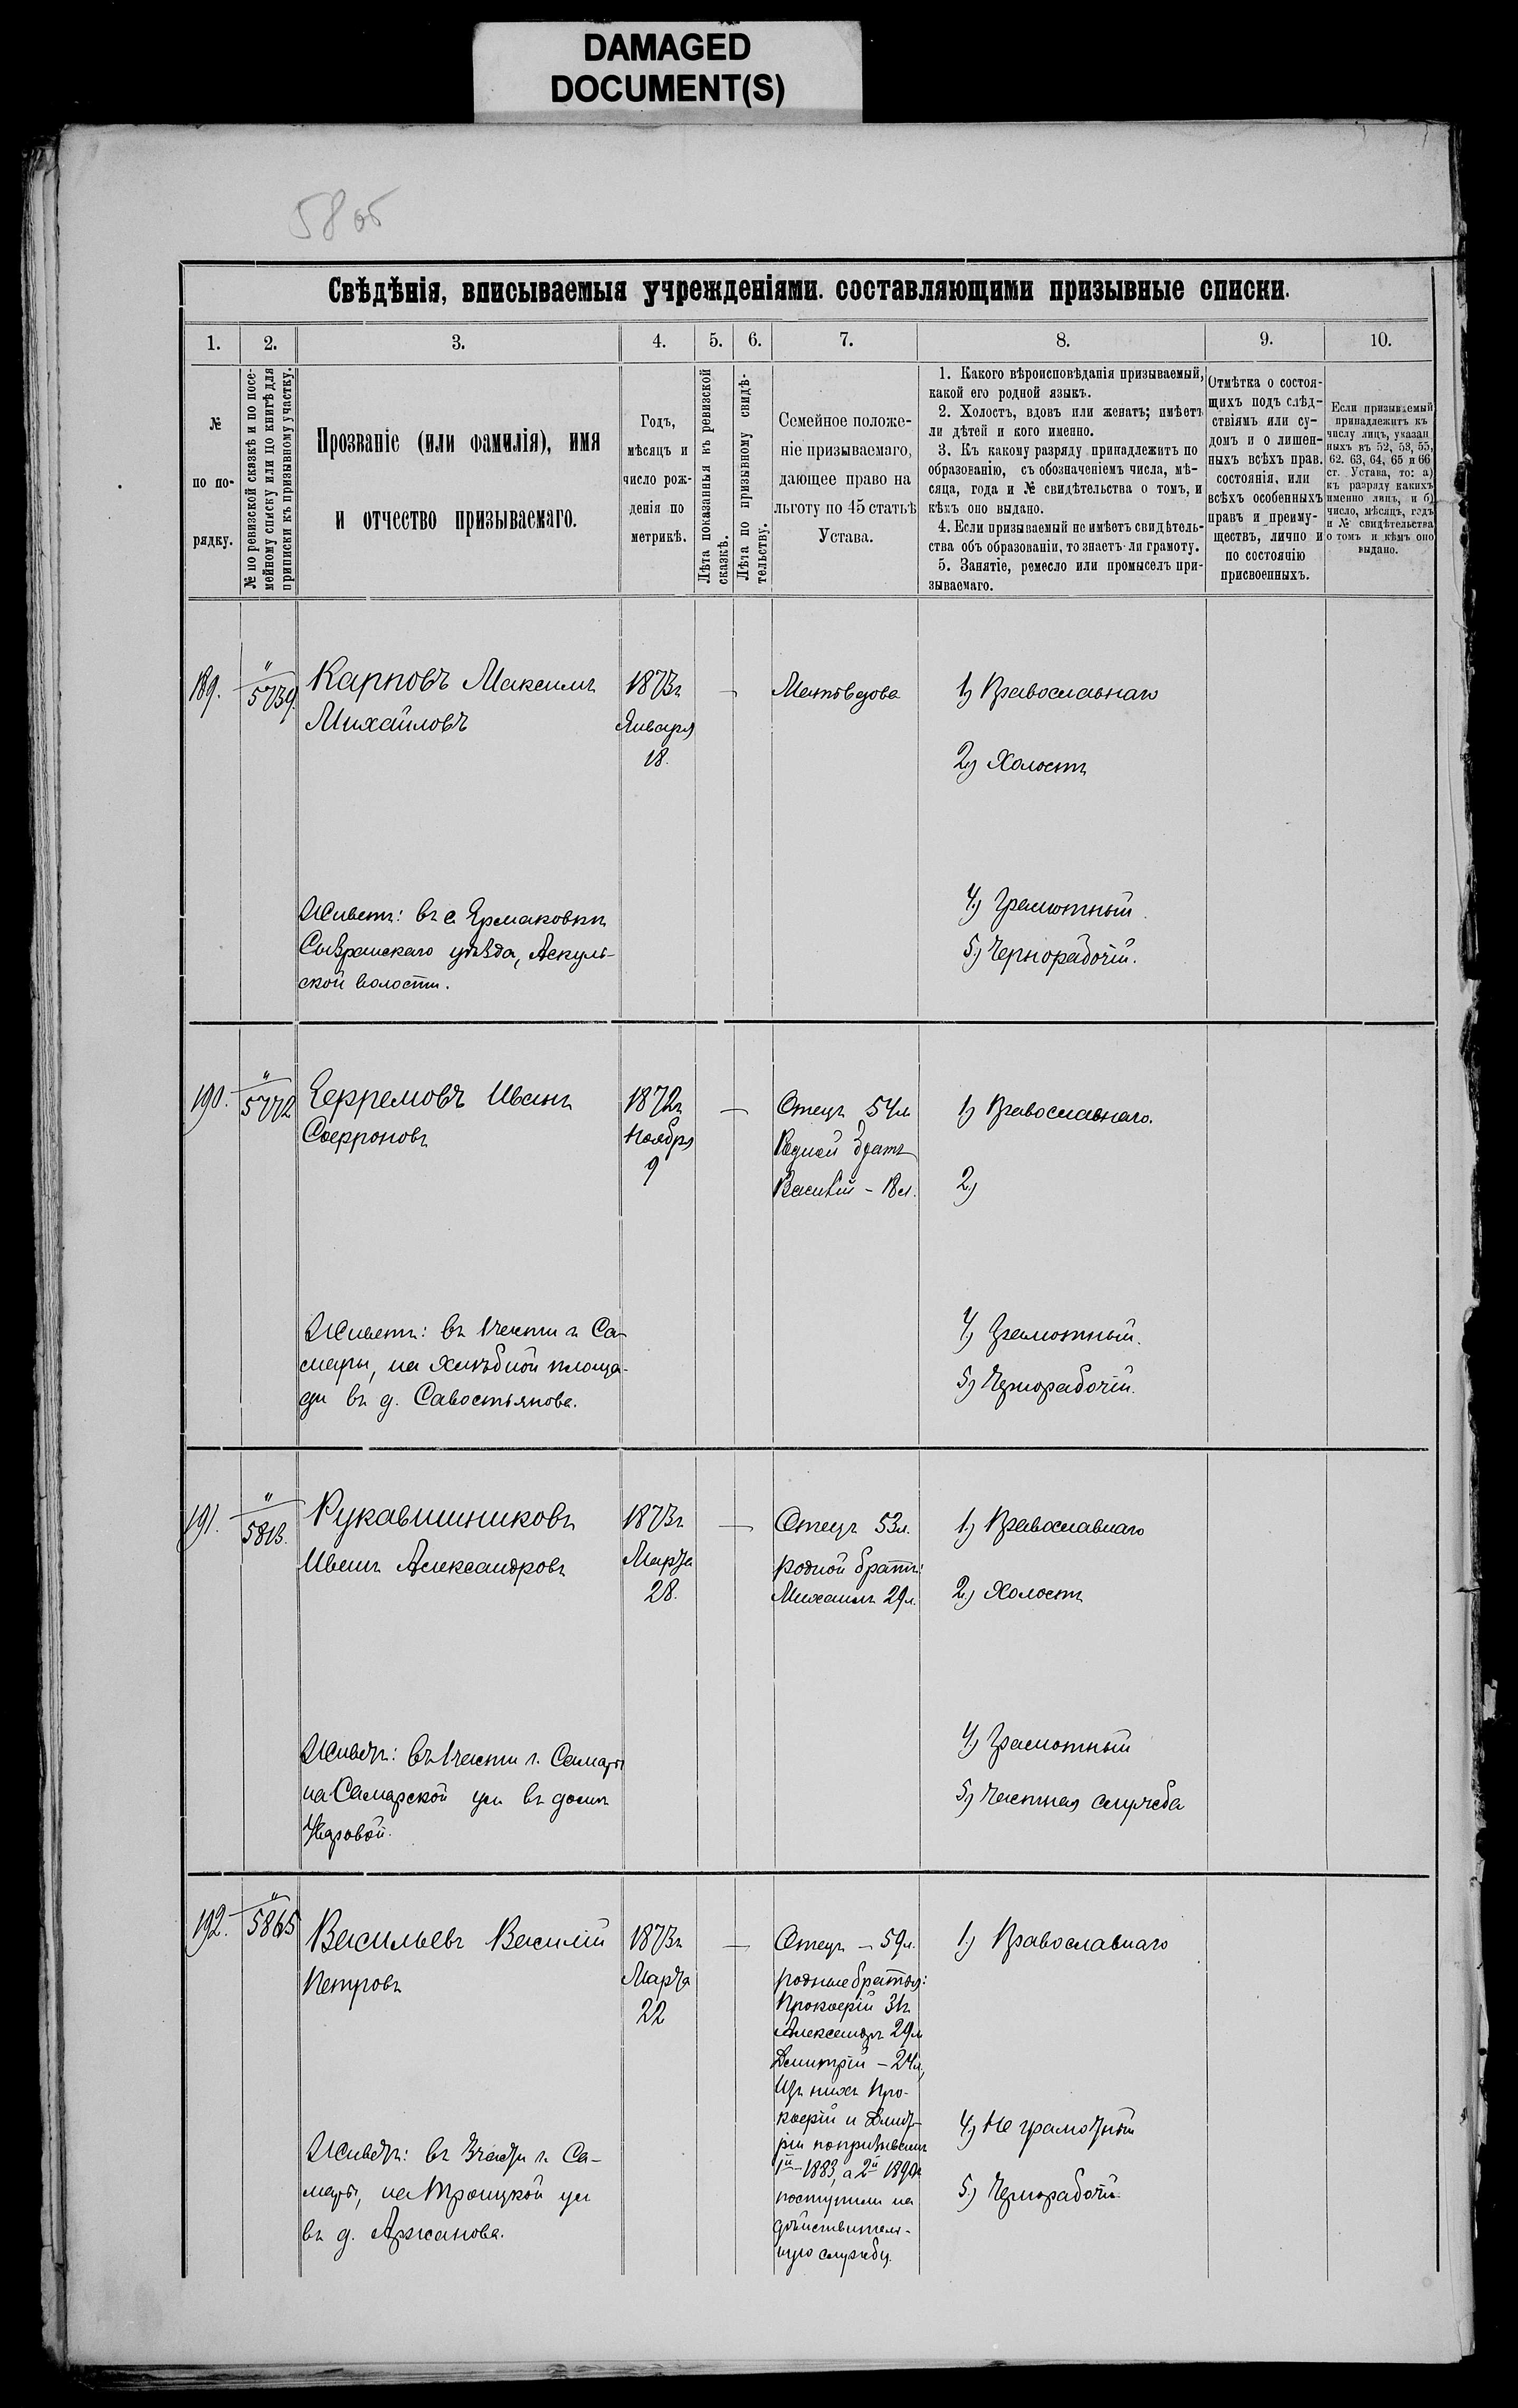 DAMAGED
DOCUMENT(S)
5865
Свѣдѣнія, вписываемыя учрежденіями. составляющими призывные списки.
1.
2.
3.
4.
5.
6.
7.
8.
9.
10.
№
по по-
рядку.
№ по ревизской сказкѣ и по посе-
мейному списку или по книгѣ для
приписки къ призывному участку.
Прозваніе (или фамилія), имя
и отчество призываемаго.
Годъ,
мѣсяцъ и
число рож-
денія по
метрикѣ.
Лѣта показанныя къ ревизской
сказкѣ.
Лѣта по призывному свидѣ-
тельству.
Семейное положе-
ніе призываемаго,
дающее право на
льготу по 45 статьѣ
Устава.
1. Какого вѣроисповѣданія призываемый,
какой его родной языкъ.
2. Холостъ, вдовъ или женатъ; имѣетъ
ли дѣтей и кого именно.
3. Къ какому разряду принадлежитъ по
образованію, съ обозначеніемъ числа, мѣ-
сяца, года и № свидѣтельства о томъ, и
кѣмъ оно выдано.
4. Если призываемый не имѣетъ свидѣтель-
ства объ образованіи, то знаетъ-ли грамоту.
5. Занятіе, ремесло или промыселъ при-
зываемаго.
Отмѣтка о состоя-
щихъ подъ слѣд-
ствіямъ или су-
домъ и о лишен-
ныхъ всѣхъ прав.
состоянія, или
всѣхъ особенныхъ
правъ и преиму-
ществъ, лично и
по состоянію
присвоенныхъ.
Если призываемый
принадлежитъ къ
числу лицъ, указан
ныхъ въ 52, 53, 55,
62. 63, 64, 65 и 66
ст. Устава, то: а)
къ разряду какихъ
именно лицъ, и б)
число, мѣсяцъ, годъ
и № свидѣтельства
о томъ и кѣмъ оно
выдано.
189.
"
5739
Карповъ Максимъ
Михайловъ
1873г
Января
18.
—
Мать вдова
1) Православнаго
2) Холостъ
4) Грамотный
5) Чернорабочій.
Живетъ: въ с. Ермаковкѣ
Сызранскаго уѣзда, Аскуль-
ской волости.
190.
"
5772
Ефремовъ Иванъ
Софроновъ
1872г
Ноября
9
—
Отецъ 54л
Родной братъ
Василій – 18л.
1) Православнаго.
2)
4) Грамотный.
5) Чернорабочій.
Живетъ: въ 1 части г. Са-
мары, на Хлѣбной площа-
ди въ д. Савостьянова.
191.
"
5813.
Рукавишниковъ
Иванъ Александровъ
1873г
Марта
28.
—
Отецъ 53л.
родной братъ:
Михаилъ 29л.
1) Православнаго
2) Холостъ
4) Грамотный
5) Частная служба
Живетъ: въ 1 части г. Самары
на Самарской ул въ домѣ
192.
"
5865
Васильевъ Василій
Петровъ
1873г
Марта
22
—
Отецъ – 59л.
родные братья:
Прокофій 31г
Александръ 29л
Дмитрій – 24л,
Изъ нихъ Про-
кофій и Дмит-
рій по призывамъ
1й – 1883, а 2й 1890г
поступили на
дѣйствитель-
ную службу.
1) Православнаго
4) Не грамотный
5) Чернорабочій
Живетъ: въ 3 части г. Са-
мары, на Троицкой ул
въ д. Аржанова.